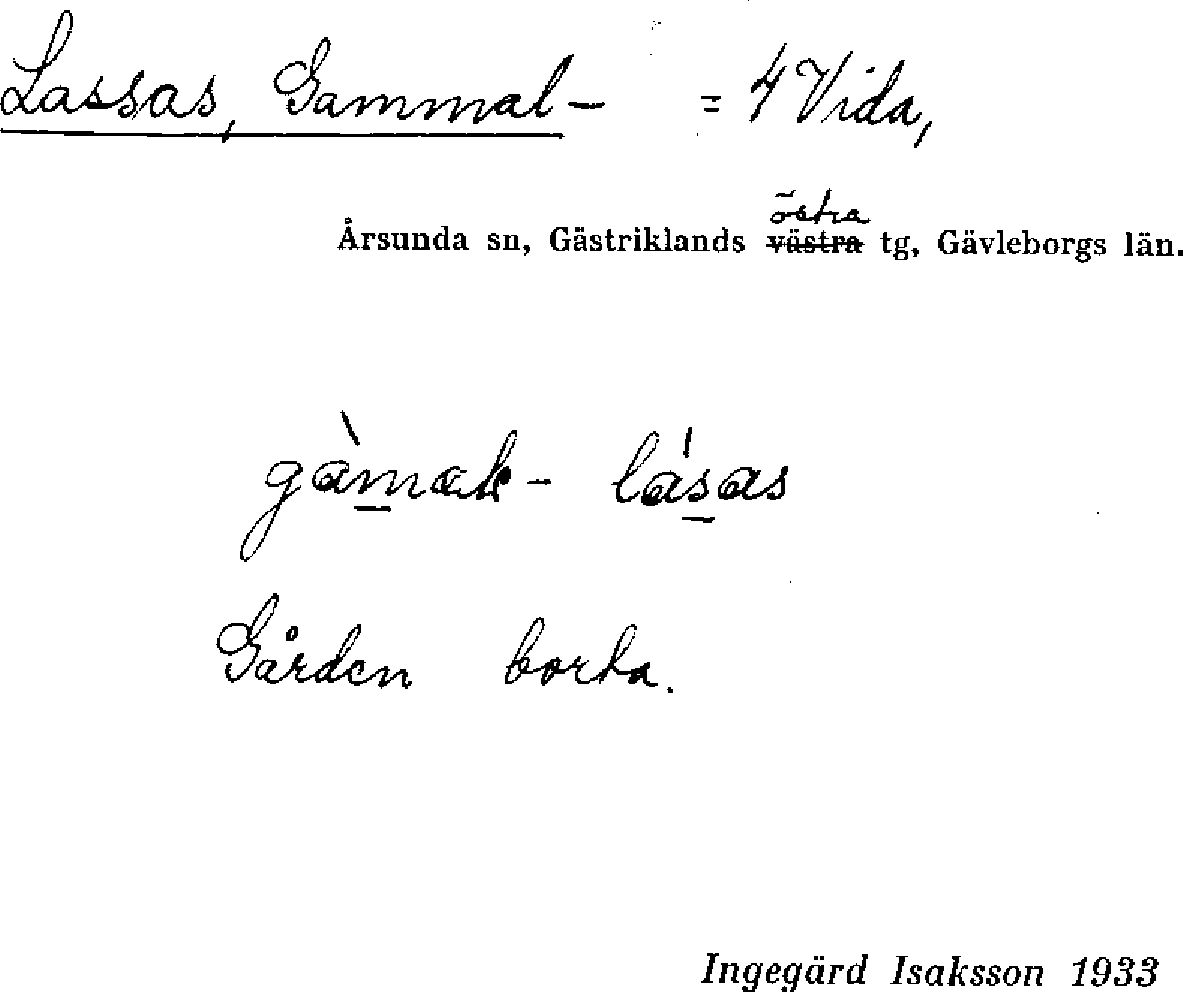 Lassas, Gammal- = 4 Vida,
östra
Årsunda sn, Gästriklands västra tg, Gävleborgs län.
gàmal- lásas
Gården borta.
Ingegärd Isaksson 1933